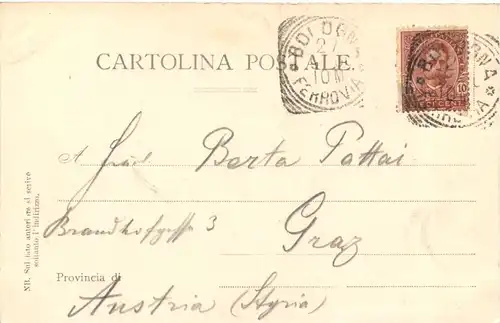 CARTOLINA POSTALE.
BOLOGNA
27
10 M
FERROVIA
BOLOGNA
FERROVIA
10
A Fräul. Berta Pattai
Brandhofgasse 3
Graz
Provincia di
Austria (Styria)
NB. Sul lato anteriore si scrive
soltanto l'indirizzo.